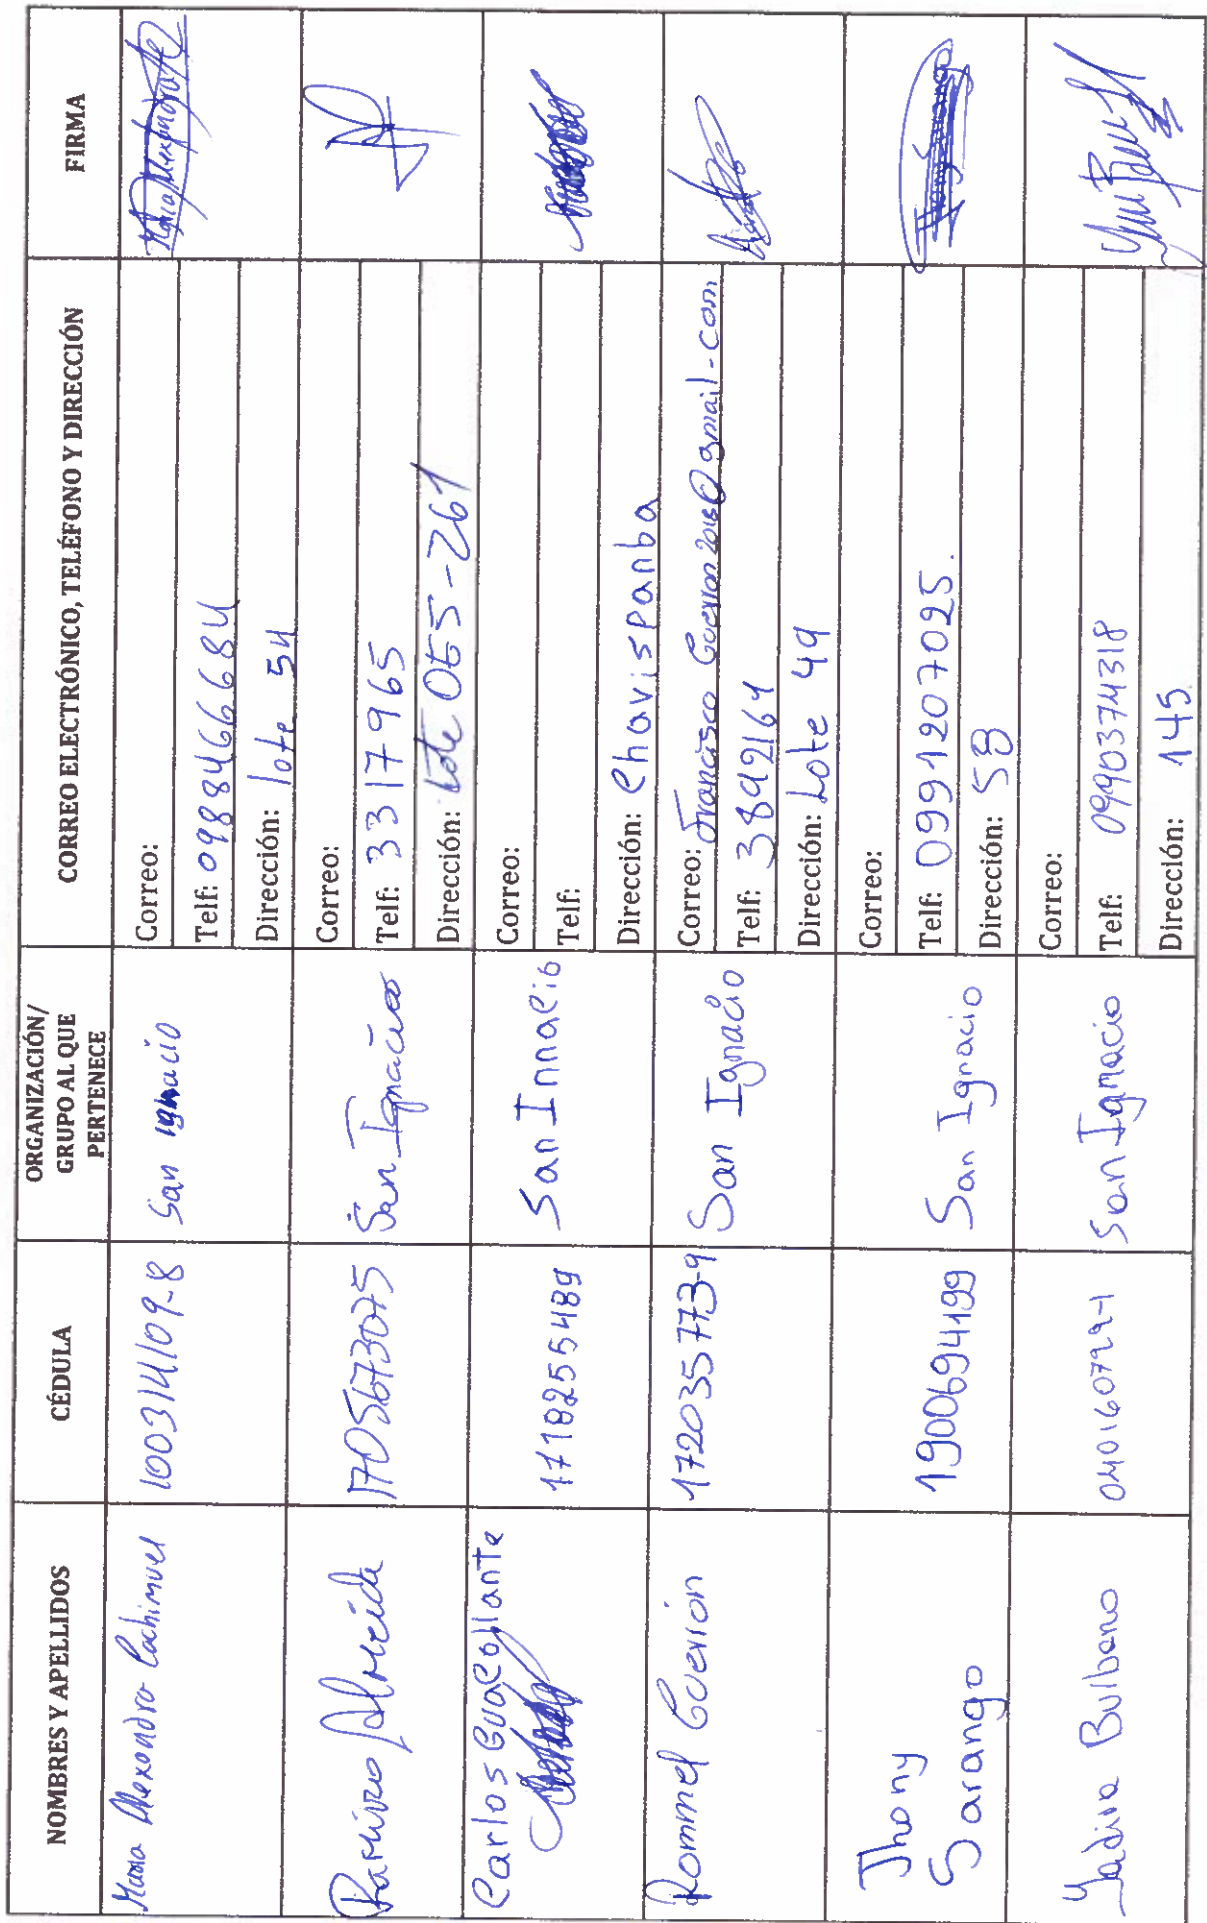 NOMBRES Y APELLIDOS
CÉDULA
ORGANIZACIÓN/
GRUPO AL QUE
PERTENECE
CORREO ELECTRÓNICO, TELÉFONO Y DIRECCIÓN
FIRMA
Maria Alexandra Cachimuel
100314109-8
San ignacio
Correo:
Telf: 0988466684
Dirección: lote 54
Ramiro Almeida
1705673075
San Ignacio
Correo:
Telf: 3317965
Dirección: Lote OE5-261
Carlos Guacollante
1718255489
San Innacio
Correo:
Telf:
Dirección: Chavispanba
Rommel Guerrón
172035773-9
San Ignacio
Correo: Francisco Guerron2018@gmail-com
Telf: 3892164
Dirección: Lote 49
Jhony
Sarango
1900694199
San Ignacio
Correo:
Telf: 0991207025.
Dirección: 58
Yadira Bulbano
040160799-1
San Ignacio
Correo:
Telf: 0990374318
Dirección: 145